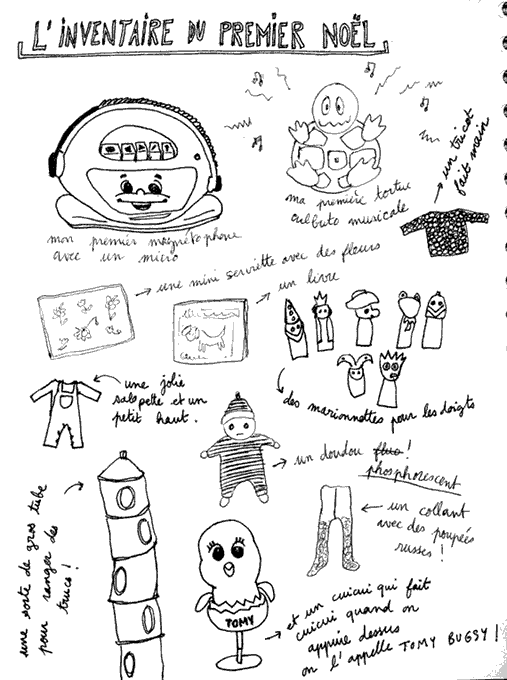 L'INVENTAIRE DU PREMIER NOËL
mon premier magnétophone
avec un micro
ma première tortue
culbuto musicale
un tricot
fait main
une mini serviette avec des fleurs
un livre
des marionnettes pour les doigts
une jolie
salopette et un
petit haut.
un doudou fluo !
phosphorescent
un collant
avec des poupées
russes !
une sorte de gros tube
pour ranger des
trucs !
TOMY
et un cuicui qui fait
cuicui quand on
appuie dessus
on l'appelle TOMY BUGSY !